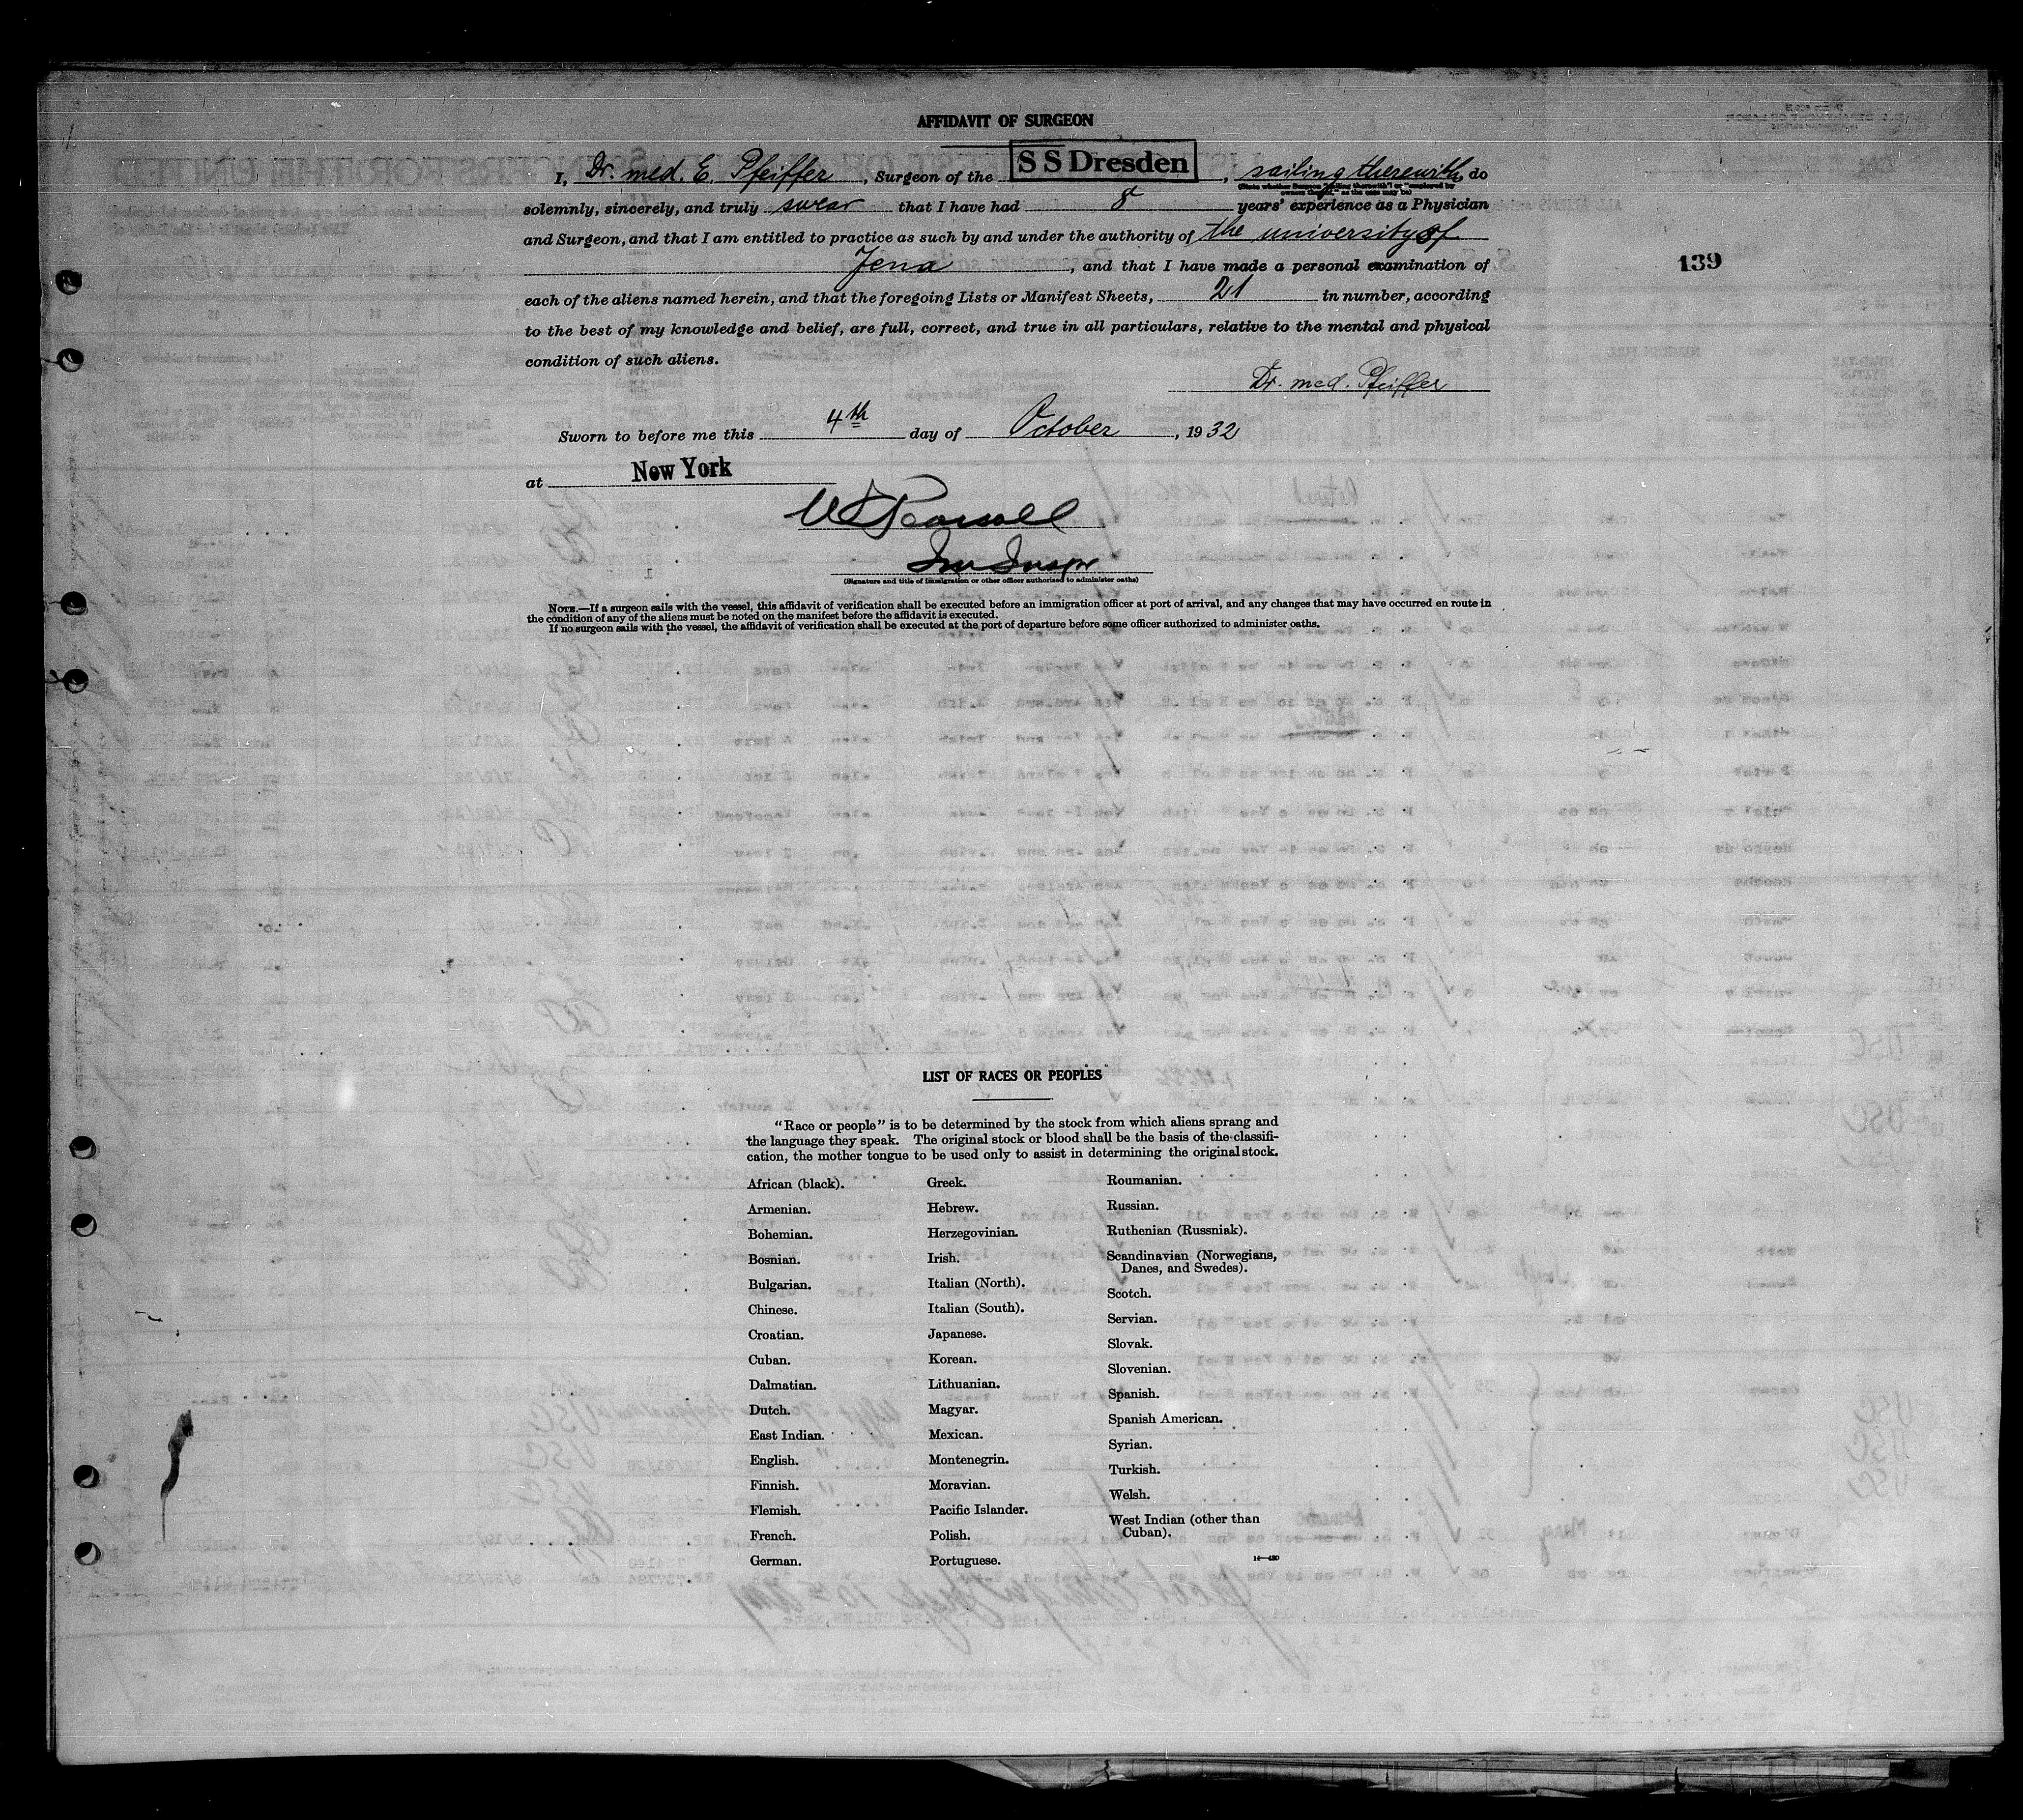 AFFIDAVIT OF SURGEON
I, Dr. med. E. Pfeiffer, Surgeon of the SS Dresden, sailing therewith, do
(State whether Surgeon "sailing therewith" or "employed by
owners thereof," as the case may be)
solemnly, sincerely, and truly swear that I have had 8 years' experience as a Physician
and Surgeon, and that I am entitled to practice as such by and under the authority of the university of
Jena, and that I have made a personal examination of
each of the aliens named herein, and that the foregoing Lists or Manifest Sheets, 21 in number, according
to the best of my knowledge and belief, are full, correct, and true in all particulars, relative to the mental and physical
condition of such aliens.
139
Dr. med. Pfeiffer
Sworn to before me this 4th day of October, 1932
at New York
(Signature and title of immigration or other officer authorized to administer oaths)
NOTE.—If a surgeon sails with the vessel, this affidavit of verification shall be executed before an immigration officer at port of arrival, and any changes that may have occurred en route in
the condition of any of the aliens must be noted on the manifest before the affidavit is executed.
If no surgeon sails with the vessel, the affidavit of verification shall be executed at the port of departure before some officer authorized to administer oaths.
LIST OF RACES OR PEOPLES
"Race or people" is to be determined by the stock from which aliens sprang and
the language they speak. The original stock or blood shall be the basis of the classifi-
cation, the mother tongue to be used only to assist in determining the original stock.
African (black).
Armenian.
Bohemian.
Bosnian.
Bulgarian.
Chinese.
Croatian.
Cuban.
Dalmatian.
Dutch.
East Indian.
English.
Finnish.
Flemish.
French.
German.
Greek.
Hebrew.
Herzegovinian.
Irish.
Italian (North).
Italian (South).
Japanese.
Korean.
Lithuanian.
Magyar.
Mexican.
Montenegrin.
Moravian.
Pacific Islander.
Polish.
Portuguese.
Roumanian.
Russian.
Ruthenian (Russniak).
Scandinavian (Norwegians,
Danes, and Swedes).
Scotch.
Servian.
Slovak.
Slovenian.
Spanish.
Spanish American.
Syrian.
Turkish.
Welsh.
West Indian (other than
Cuban).